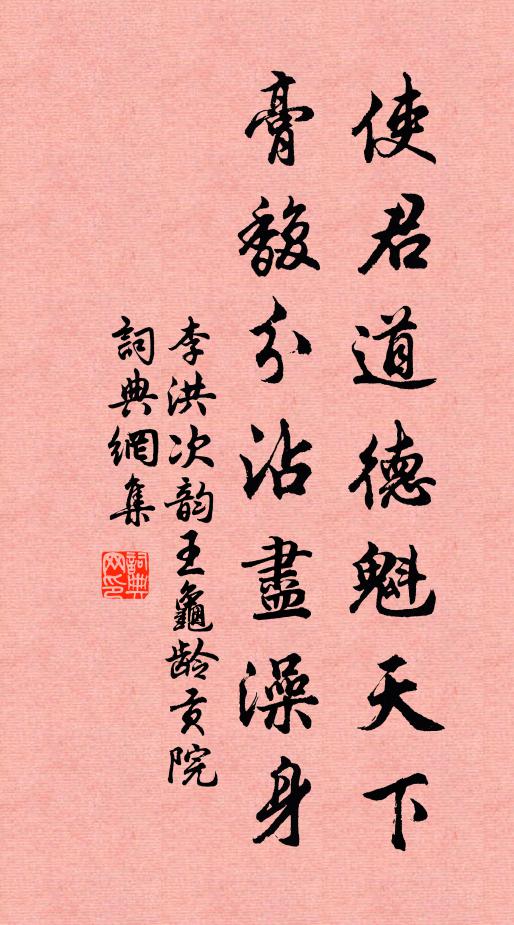 使君道德魁天下
膏馥分沾盡澡身
李洪次韵王龜龄贡院
詞典網集
詞典網印